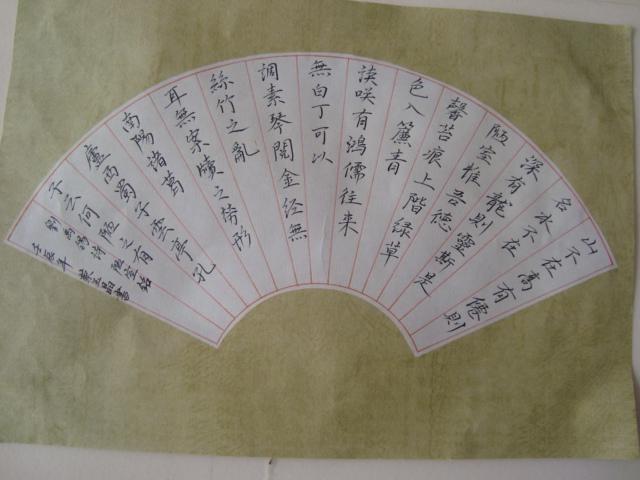 山不在高有僊則
名水不在
深有龍則靈斯是
陋室惟吾德
馨苔痕上階緑草
色入簾青
談咲有鴻儒往来
無白丁可以
調素琴閲金経無
絲竹之亂
耳無案牘之勞形
南陽諸葛
廬西蜀子雲亭孔
子云何陋之有
劉禹錫詩陋室銘
壬辰年 書